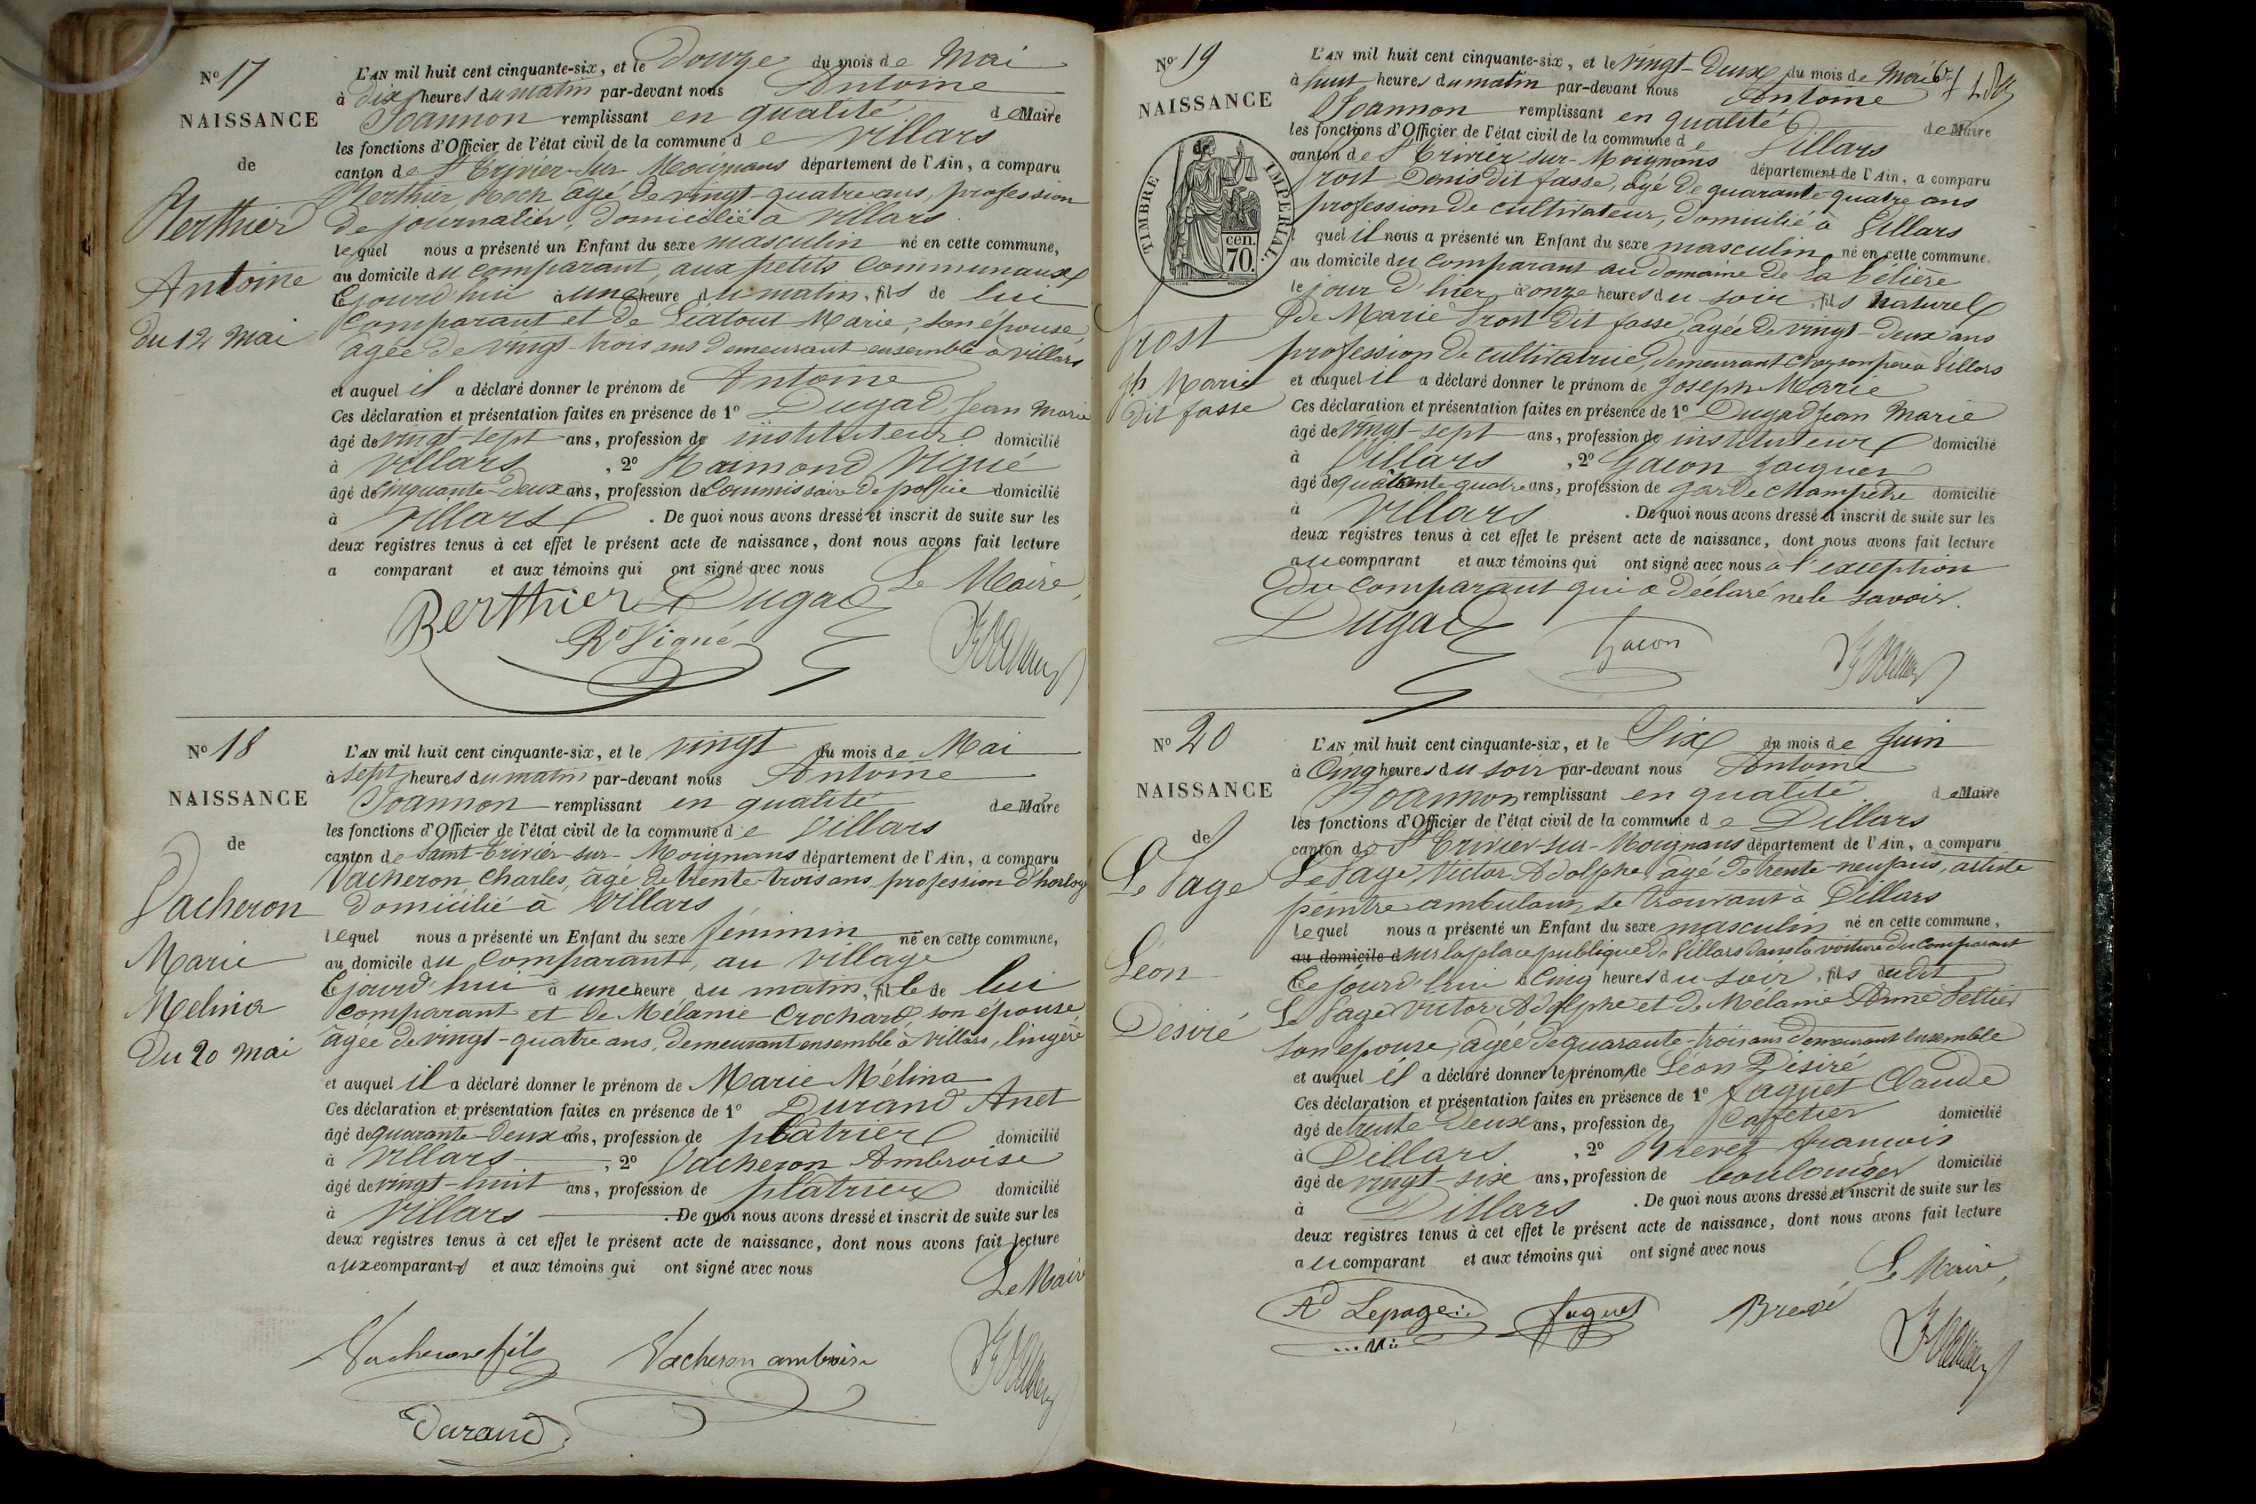 No 17
NAISSANCE
de
Berthier
Antoine
du 12 Mai
L'AN mil huit cent cinquante-six, et le Douze du mois de Mai
à dix heures du matin par-devant nous Antoine
Joannon remplissant en qualité de Maire
les fonctions d'Officier de l'état civil de la commune de Villars
canton de St Trivier-sur-Moignans département de l'Ain, a comparu
Berthier, Roch, agé de vingt-quatre ans, profession
de journalier, domicilié à Villars.
lequel nous a présenté un Enfant du sexe masculin né en cette commune,
au domicile du comparant, aux petits Communaux
Cejourd'hui à une heure du matin, fils de lui
Comparant et de Marie, son épouse
âgée de vingt-trois ans demeurant ensemble à Villars
et auquel il a déclaré donner le prénom de Antoine
Ces déclaration et présentation faites en présence de 1o Dugad, Jean Marie
âgé de vingt-sept ans, profession de instituteur domicilié
à Villars, 2o Raimond Vigué
âgé de cinquante-deux ans, profession de Commissaire de police domicilié
à Villars. De quoi nous avons dressé et inscrit de suite sur les
deux registres tenus à cet effet le présent acte de naissance, dont nous avons fait lecture
a comparant et aux témoins qui ont signé avec nous
Le Maire,
Berthier Dugad
Rd Vigué
No 18
NAISSANCE
de
Vacheron
Marie
Melina
Du 20 Mai
L'AN mil huit cent cinquante-six, et le vingt du mois de Mai
à sept heures du matin par-devant nous Antoine
Joannon remplissant en qualité de Maire
les fonctions d'Officier de l'état civil de la commune de Villars
canton de Saint-Trivier-sur-Moignans département de l'Ain, a comparu
Vacheron Charles, âgé de trente-trois ans, profession d'horloger
domicilié à Villars
lequel nous a présenté un Enfant du sexe féminin né en cette commune,
au domicile du comparant, au village
Cejourd'hui à une heure du matin, fille de lui
comparant et de Mélanie Crochard, son épouse,
âgée de vingt-quatre ans, demeurant ensemble à Villars, lingère
et auquel il a déclaré donner le prénom de Marie Mélina
Ces déclaration et présentation faites en présence de 1o Durand Anet
âgé de quarante-deux ans, profession de platrier domicilié
à Villars, 2o Vacheron Ambroise
âgé de vingt-huit ans, profession de platrier domicilié
à Villars. De quoi nous avons dressé et inscrit de suite sur les
deux registres tenus à cet effet le présent acte de naissance, dont nous avons fait lecture
aux comparants et aux témoins qui ont signé avec nous
Le Maire
Vacheron fils Vacheron ambroise
Durand
No 19
NAISSANCE
TIMBRE IMPERIAL.
cen.
70.
Prost
Jh Marie
dit fasse
L'AN mil huit cent cinquante-six, et le vingt-deux du mois de Mai
à huit heures du matin par-devant nous Antoine
Joannon remplissant en qualité de Maire
les fonctions d'Officier de l'état civil de la commune de Villars
canton de St Trivier-sur-Moignans département de l'Ain, a comparu
Prost Denis dit fasse, âgé de quarante-quatre ans
profession de cultivateur, domicilié à Villars
quel il nous a présenté un Enfant du sexe masculin né en cette commune.
au domicile du comparant au domaine de la bélière
le jour d'hier à onze heures du soir, fils naturel
de Marie Prost dit fasse, âgée de vingt-deux ans
profession de cultivatrice, demeurant chez son père à Villars
et auquel il a déclaré donner le prénom de Joseph Marie
Ces déclaration et présentation faites en présence de 1o Dugad Jean Marie
âgé de vingt-sept ans, profession de instituteur domicilié
à Villars, 2o Gacon Jacques
âgé de quarante-quatre ans, profession de garde champêtre domicilié
à Villars. De quoi nous avons dressé et inscrit de suite sur les
deux registres tenus à cet effet le présent acte de naissance, dont nous avons fait lecture
au comparant et aux témoins qui ont signé avec nous à l'exception
du comparant qui a déclaré ne le savoir.
Dugad Gacon
No 20
NAISSANCE
de
Le Page
Léon
Desiré
L'AN mil huit cent cinquante-six, et le Six du mois de Juin
à Cinq heures du soir par-devant nous Antoine
Joannon remplissant en qualité de Maire
les fonctions d'Officier de l'état civil de la commune de Villars
canton de St Trivier-sur-Moignans département de l'Ain, a comparu
Le Page, Victor Adolphe agé de trente-neuf ans, artiste
peintre ambulant, se trouvant à Villars
lequel nous a présenté un Enfant du sexe masculin né en cette commune,
au domicile d sur la place publique de Villars dans la voiture du comparant
Cejourd'hui à cinq heures du soir, fils dudit
Le Page Victor Adolphe et de Mélanie Anne Peltier
son épouse, agée de quarante-trois ans demeurant ensemble
et auquel il a déclaré donner le prénom de Léon Désiré
Ces déclaration et présentation faites en présence de 1o Faguet Claude
âgé de trente-deux ans, profession de Caffetier domicilié
à Villars, 2o Brevet françois
âgé de vingt-six ans, profession de boulanger domicilié
à Villars. De quoi nous avons dressé et inscrit de suite sur les
deux registres tenus à cet effet le présent acte de naissance, dont nous avons fait lecture
au comparant et aux témoins qui ont signé avec nous
Le Maire,
Ad Lepage Faguet Brevé